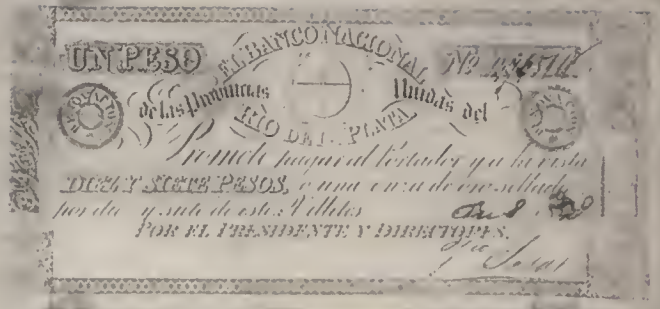 UN PESO
EL BANCO NACIONAL
Nº
de las Provincias
Unidas del
RIO DE LA PLATA
Promete pagar al Portador y a la vista
DIEZ Y SIETE PESOS, o una onza de oro sellado
por diez y siete de estos Villetes
POR EL PRESIDENTE Y DIRECTORES.